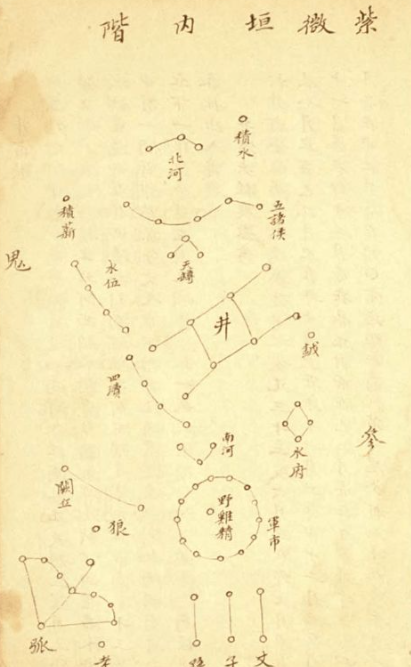 紫微垣内階
積水
北河
五諸侯
積薪
鬼
水位
天罇
井
鉞
四瀆
南河
水府
參
闕丘
狼
野雞精
軍市
弧
老
孫
子
丈